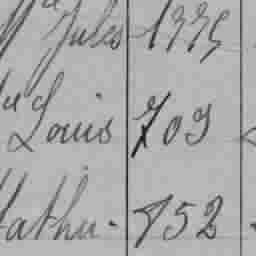 Jules 1335
Louis 709
Mathu. 852